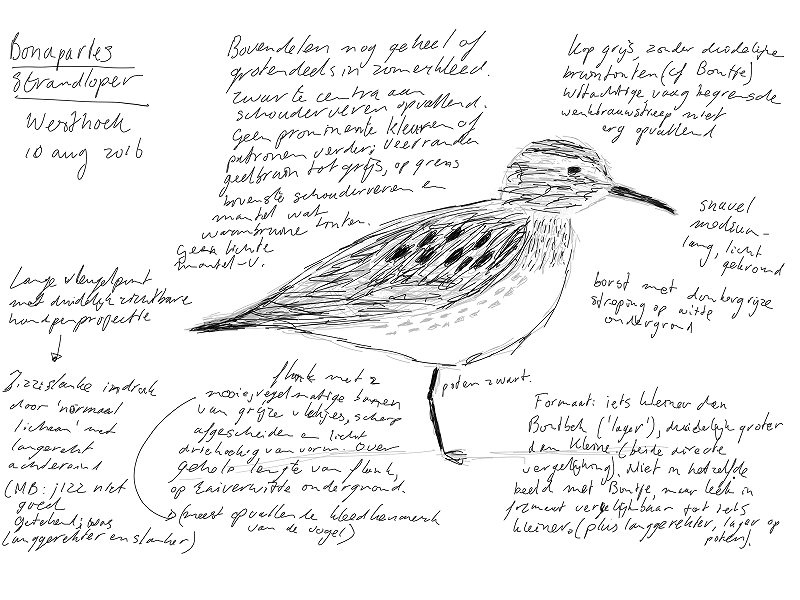 Bonapartes
Strandloper
Westhoek
10 aug 2016
Bovendelen nog geheel of
grotendeels in zomerkleed.
Zwarte centra aan
schouderveren opvallend.
Geen prominente kleuren of
patronen verder; veerranden
geelbruin tot grijs, op grens
bovenste schouderveren en
mantel wat
warmbruine tinten.
Geen lichte
mantel-V.
Kop grijs, zonder duidelijke
bruintonten (cf Bontje)
Witachtige vaag begrensde
wenkbrauwstreep niet
erg opvallend
snavel
medium-
lang, licht
gekromd
borst met donkergrijze
streping op witte
ondergrond
Lange vleugelpunt
met duidelijk zichtbare
handpenprojectie
Jizz: slanke indruk
door 'normaal
lichaam' met
langgerekt
achtereind
(MB: jizz niet
goed
getekend; was
langgerekter en slanker)
flank met 2
mooie, regelmatige banen
van grijze vlekjes, scherp
afgescheiden en licht
driehoekig van vorm. Over
gehele lengte van flank,
op zuiverwitte ondergrond.
(meest opvallende kleedkenmerk
van de vogel)
poten zwart.
Formaat: iets kleiner dan
Bontbek ('lager'), duidelijk groter
dan Kleine (beide directe
vergelijking). Niet in hetzelfde
beeld met Bontje, maar leek in
formaat vergelijkbaar tot iets
kleiner. (plus langgerekter, lager op
poten).